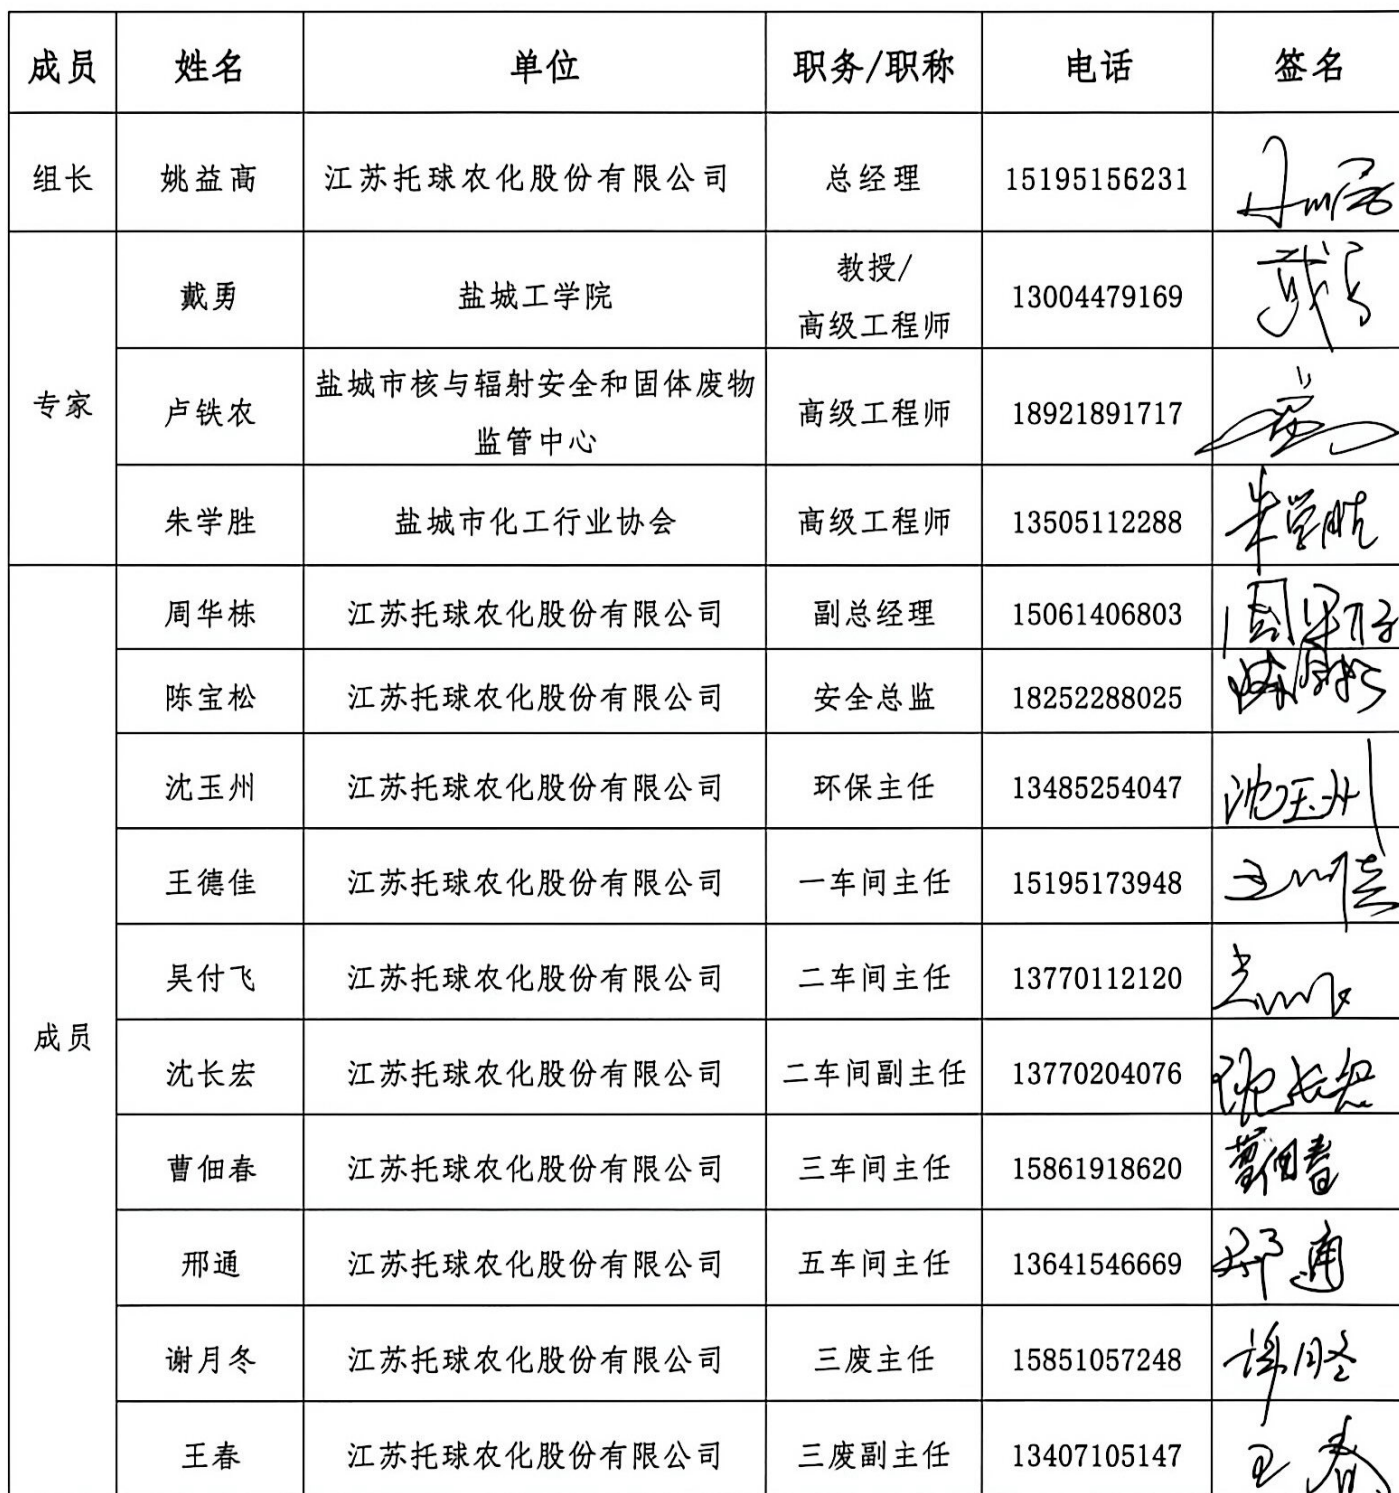 成员 姓名 单位 职务/职称 电话 签名
组长 姚益高 江苏托球农化股份有限公司 总经理 15195156231
专家 戴勇 盐城工学院 教授/
高级工程师 13004479169 戴勇
卢铁农 盐城市核与辐射安全和固体废物
监管中心 高级工程师 18921891717
朱学胜 盐城市化工行业协会 高级工程师 13505112288 朱学胜
成员 周华栋 江苏托球农化股份有限公司 副总经理 15061406803 周华栋
陈宝松 江苏托球农化股份有限公司 安全总监 18252288025 陈宝松
沈玉州 江苏托球农化股份有限公司 环保主任 13485254047 沈玉州
王德佳 江苏托球农化股份有限公司 一车间主任 15195173948
吴付飞 江苏托球农化股份有限公司 二车间主任 13770112120
沈长宏 江苏托球农化股份有限公司 二车间副主任 13770204076 沈长宏
曹佃春 江苏托球农化股份有限公司 三车间主任 15861918620 曹佃春
邢通 江苏托球农化股份有限公司 五车间主任 13641546669 邢通
谢月冬 江苏托球农化股份有限公司 三废主任 15851057248 谢月冬
王春 江苏托球农化股份有限公司 三废副主任 13407105147 王春